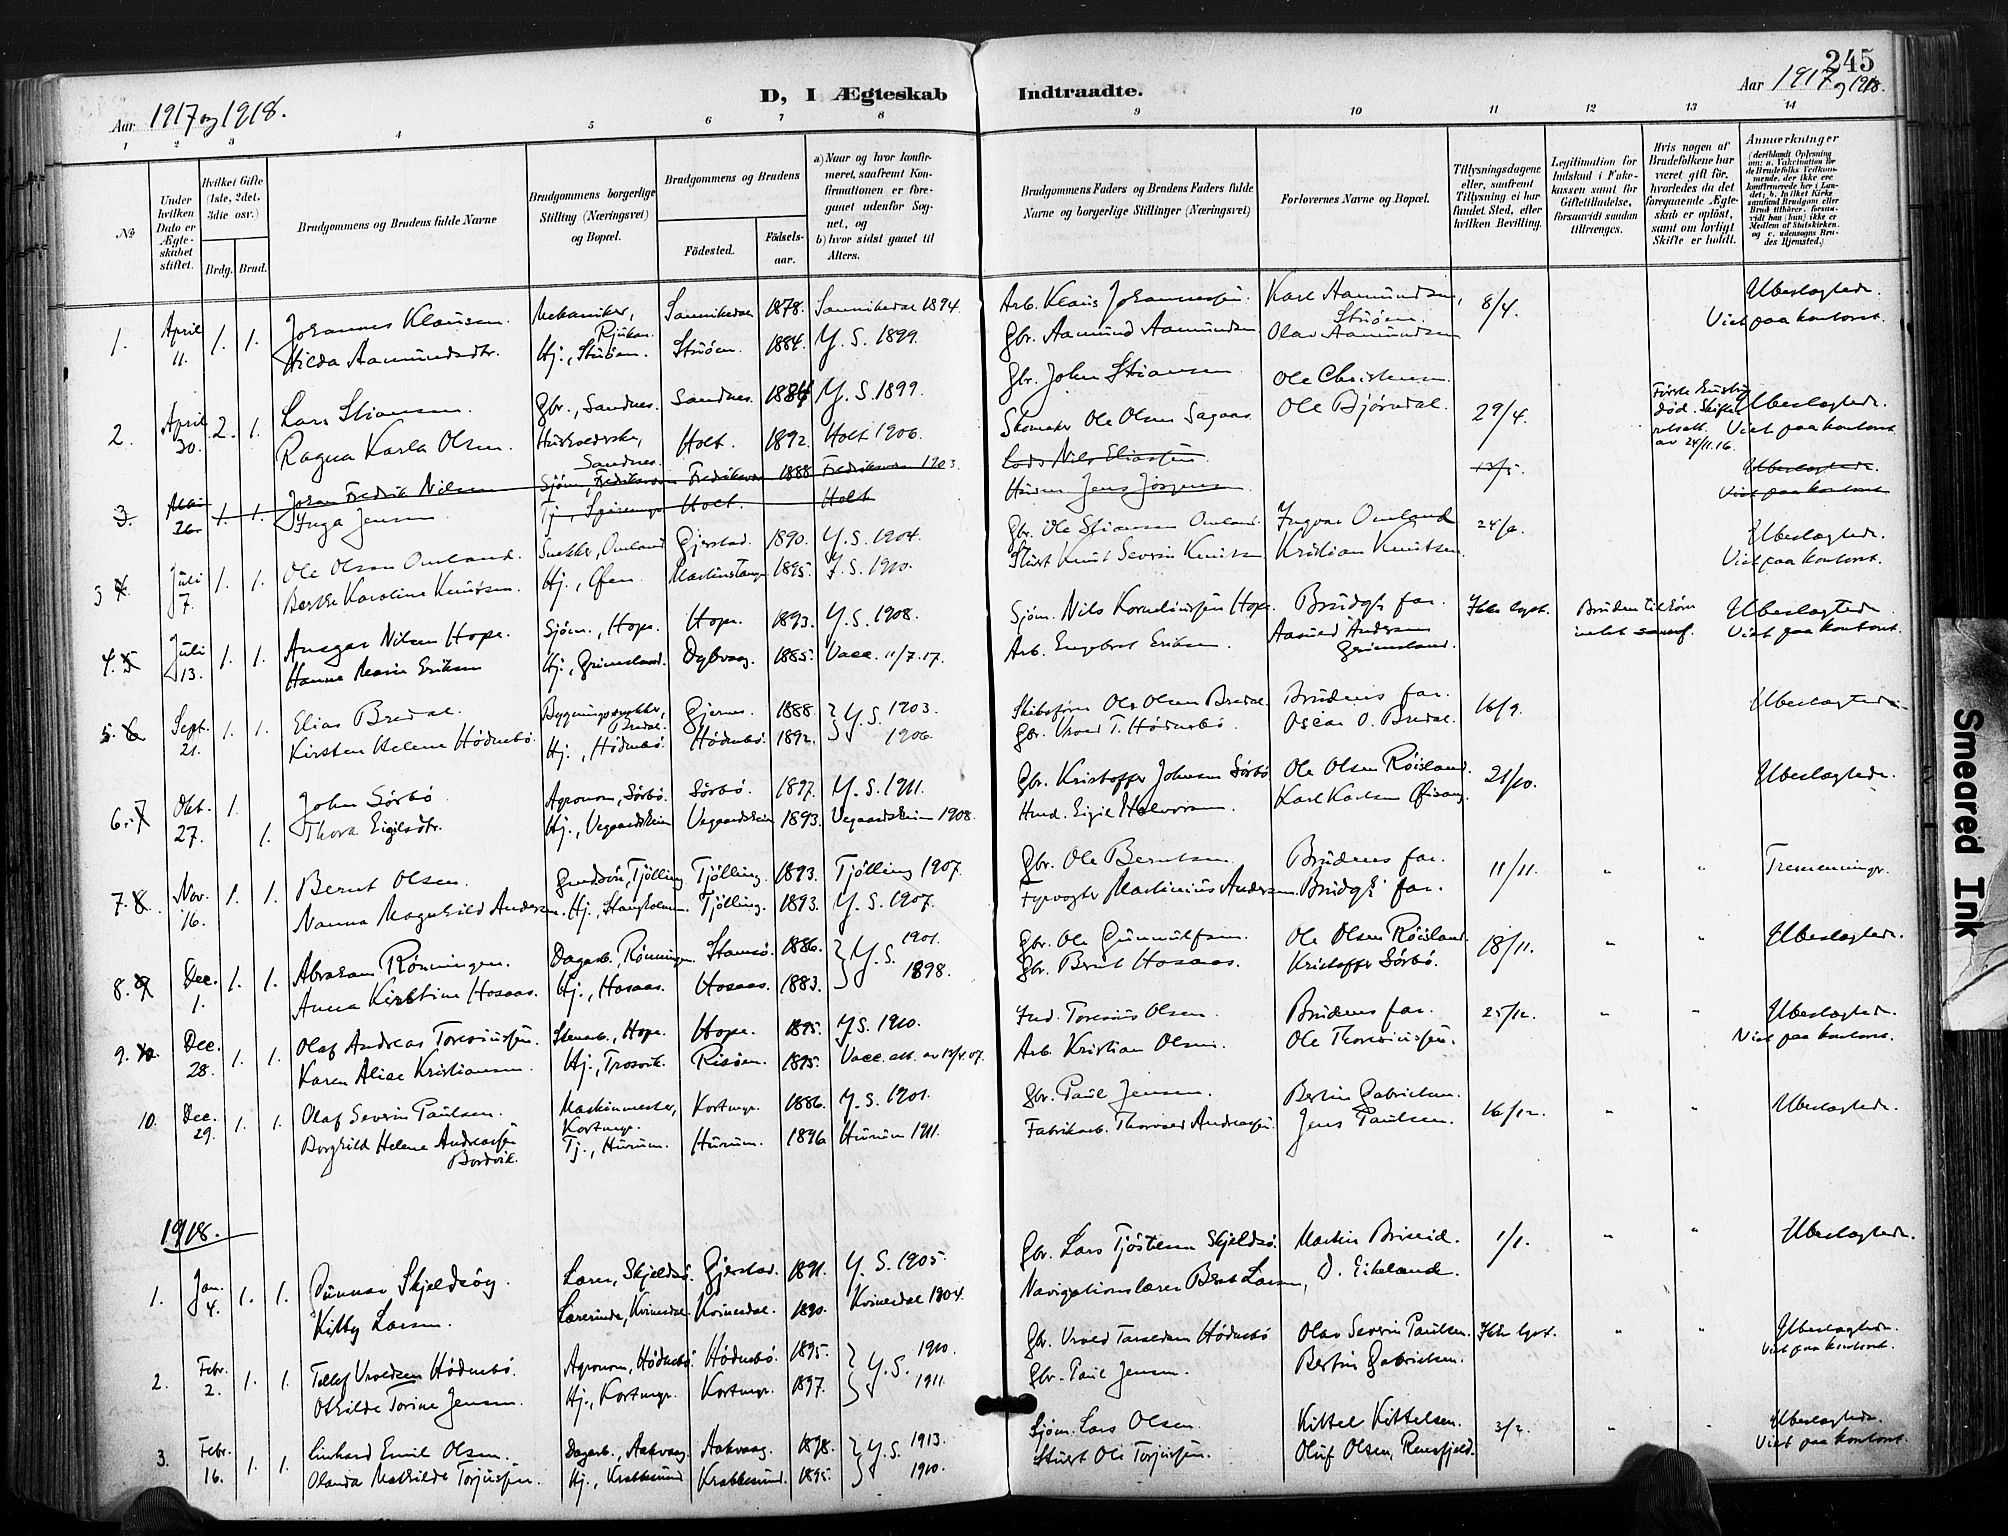 245
Aar 1917 og 1918.
D, I Ægteskab Indtraadte.
Aar 1917 og 1918.
1 2 3 4 5 6 7 8 9 10 11 12 13 14
No
Under hvilken Dato er Ægteskabet stiftet.
Hvilket Gifte (1ste, 2det, 3die osv.)
Brdg. Brud.
Brudgommens og Brudens fulde Navne
Brudgommens borgerlige Stilling (Næringsvei) og Bopæl.
Brudgommens og Brudens
Fødested.
Fødselsaar.
a) Naar og hvor konfirmeret, saafremt Konfirmationen er foregaaet udenfor Sognet, og
b) hvor sidst gaaet til Alters.
Brudgommens Faders og Brudens Faders fulde Navne og borgerlige Stillinger (Næringsvei)
Forlovernes Navne og Bopæl.
Tillysningsdagene eller, saafremt Tillysning ei har fundet Sted, efter hvilken Bevilling.
Legitimation for Indskud i Enkekassen samt for Giftetilladelse, forsaavidt saadan tiltrænges.
Hvis nogen af Brudefolkene har været gift før, hvorledes da det foregaaende Ægteskab er opløst, samt om lovligt Skifte er holdt.
Anmerkninger
(deriblandt Oplysning om: a. Vakcination for de Brudefolks Vedkommende, der ikke ere konfirmerede her i Landet; b. hvilket Kirkesamfund Brudgom eller Brud tilhører, forsaavidt han (hun) ikke er Medlem af Statskirken, og c. udensogns Brudes Hjemsted.)
1. April 11. 1. 1. Johannes Klausen. Mekaniker, Rjukan. Sannikedal 1878. Sannikedal 1894. Arb. Klaus Johannessen. Karl Aamundsen, Støen. 8/4. Ubeslægtede.
Hilda Aamundsdtr. Hj., Støen. Støen. 1884. Y. S. 1899. Gbr. Aamund Aamundsen Olav Aamundsen Viet paa kontoret.
2. April 30. 2. 1. Lars Stiansen. Gbr., Sandnes. Sandnes. 1884 Y. S. 1899. Gbr. John Stiansen Ole Christensen. 29/4. Første hustru død. Skifte av 24/11.16. Ubeslægtede.
Ragna Karla Olsen. Husholderske, Sandnes. Holt. 1892. Holt 1906. Skomaker Ole Olsen Sagaas Ole Bjørndal. Viet paa kontoret.
3. Mai 26. 1. 1. Johan Fredrik Nilsen Sjøm., Fredriksværn Fredriksværn 1888 Fredriksværn 1903. Lods Nils Eliassen 13/5. Ubeslægtede.
Inga Jensen Tj. Holt. Holt Jens Jørgensen Viet paa kontoret
3 4 Juli 7. 1. 1. Ole Olsen Omland. Snekker, Omland Gjerstad. 1890. Y. S. 1904. Gbr. Ole Stiansen Omland. Ingvar Omland 24/6. Ubeslægtede.
Berthe Karoline Knutsen. Hj. 1895. Y. S. 1910. Knut Severin Knutsen Kristian Knutsen. Viet paa kontoret.
4. 5 Juli 13. 1. 1. Ansgar Nilsen Hope. Sjøm., Hope. Hope. 1893. Y. S. 1908. Sjøm. Nils Korneliussen Hope. Brudgs far. Ikke lyst. Ubeslægtede.
Hanna Marie Eriksen Hj., Grimsland. Dybvaag. 1885. Vacc. 11/7.17. Arb. Engebret Eriksen. Aasulf Andersen Grimsland. Viet paa kontoret.
5. 6 Sept. 21. 1. 1. Elias Bredal. Bygningssnekker, Bredal. Gjernes. 1888. Y. S. 1903. Ole Olsen Bredal. Brudens far. 16/9. Ubeslægtede.
Kirsten Helene Hødnebø. Hj., Hødnebø. Hødnebø. 1892. 1906. Gbr. Vroed T. Hødnebø Oscar O. Bredal.
6. 7 Okt. 27. 1. John Sørbø Agronom, Sørbø. Sørbø. 1897. Y. S. 1911. Gbr. Kristoffer Johnsen Sørbø Ole Olsen Røisland. 21/10. Ubeslægtede.
1. Thora Eigilsdtr. Hj., Vegaardsheien Vegaardsheien 1893. Vegaardsheien 1908. Eigil Halvorsen. Karl Karlsen
7. 8. Nov. 16. 1. 1. Bernt Olsen. Gaardssøn, Tjølling Tjølling. 1893. Tjølling 1907. Gbr. Ole Berntsen Brudens far. 11/11. " " Tremenninger.
Nanna Magnhild Andersen. Hj., Stangholmen. Tjølling. 1893. Y. S. 1907. Fyrvogter Martinius Andersen. Brudgs far.
8. 9 Dec. 1. 1. 1. Abraham Rønningen. Dagarb. Rønningen. Stamsø. 1886. Y. S. 1901. Gbr. Ole Gunnulfsen. Ole Olsen Røisland. 18/11. " " Ubeslægtede.
Anna Kirstine Hosaas. Hj., Hosaas. Hosaas. 1883. 1898. Gbr. Bernt Hosaas. Kristoffer Sørbø.
9. 10. Dec. 28. 1. 1. Olaf Andreas Toresiussen. Stenarb., Hope. Hope. 1895. Y. S. 1910. Toresius Olsen. Brudens far. 25/12. " " Ubeslægtede.
Karen Alise Kristiansen. Hj., Trosvik. Risøen. 1895. Vacc. att. av 13/4.07. Arb. Kristian Olsen. Ole Thoresiussen. Viet paa kontoret.
10. Dec. 29. 1. 1. Olaf Severin Paulsen. Maskinmester, Kortmyr. Kortmyr. 1886. Y. S. 1901. Gbr. Paul Jensen. Bertin Gabrielsen. 16/12. " " Ubeslægtede.
Borghild Helene Andreassen Bordvik. Tj., Hurum. Hurum. 1896 Hurum 1911. Fabrikarb. Thorvald Andreassen. Jens Paulsen.
1918.
1. Jan. 4. 1. 1. Gunnar Skjeldsøy. Lærer, Skjeldsø. Gjerstad. 1891. Y. S. 1905. Gbr. Lars Tjøstelsen Skjeldsø. Martin Briseid. 1/1. " " Ubeslægtede.
Kitty Larsen. Lærerinde, Kvinesdal. Kvinesdal. 1890. Kvinesdal 1904. Navigationslærer Bernt Larsen, O. Eikeland.
2. Febr. 2. 1. 1. Tellef Vroldsen Hødnebø. Agronom, Hødnebø. Hødnebø. 1895. Y. S. 1910. Gbr. Vroed Tarjeldsen Hødnebø Olav Severin Paulsen. Ikke lyst. " " Ubeslægtede.
Othilde Torine Jensen. Hj., Kortmyr. Kortmyr. 1897. 1911. Gbr. Paul Jensen. Bertin Gabrielsen. Viet paa kontoret.
3. Febr. 16. 1. 1. Linhard Emil Olsen. Dagarb., Aakvaag. Aakvaag. 1898. Y. S. 1913. Sjøm. Lars Olsen Kittel Kittelsen. 3/2. " " Ubeslægtede.
Olanda Mathilde Torjussen. Hj., Krabbesund Krabbesund. 1895. 1910. Ole Torjussen. Oluf Olsen, Rensfjeld. Viet paa kontoret.
Smeared Ink